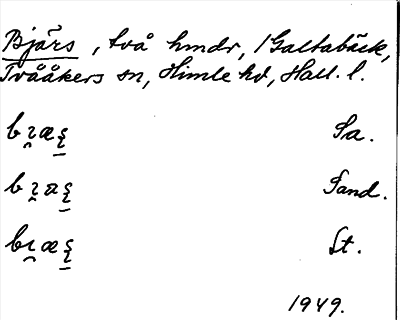 Bjärs, två hmdr, i Galtabäck,
Tvååkers sn, Himle hd, Hall. l.
bɿ̯æʂ Sa.
bɿ̯aʂ Sand.
bɿ̯æʂ St.
1949.